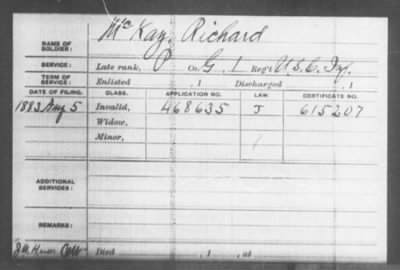 NAME OF SOLDIER: McKay, Richard
SERVICE: Late rank, P Co. G, 1 Reg't U.S.C. Inf.
TERM OF SERVICE: Enlisted , 1 Discharged , 1
DATE OF FILING. CLASS. APPLICATION NO. LAW. CERTIFICATE NO.
1883 Aug 5 Invalid, 468635 J 615207
Widow,
Minor,
ADDITIONAL SERVICES:
REMARKS:
Died , 1 , at